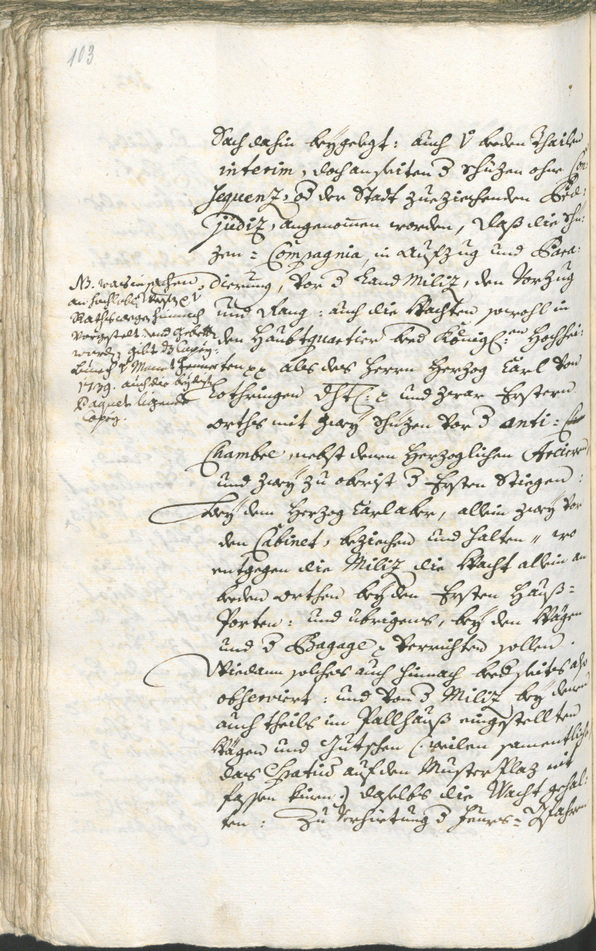 103
Sach dahin beygelegt: auch v beeden Theilen
interim, doch an seiten d Schüzen ohne Con-
sequenz, od der Stadt zueziehenden Præ-
judiz, angenommen worden, daß die Schü-
zen = Compagnia, in Aufzug und Para-
dierung, vor d Land Miliz, den Vorzug
und Rang: auch die Wachten sowohl in
den Haubtquartier beed Königl:en Hochhei-
ten xx als des Herrn Herzog Carl von
Lothringen Dhtl: x und zwar Erstern
orths mit zwey Schüzen vor d anti-
Chambre, nebst denen Herzoglichen
und zwey zu oberist d Ersten Stiegen:
bey dem Herzog Carl aber, allein zwey vor
den Cabinet, beziehen und halten, wo
entgegen die Miliz die Wacht allein an
beeden orthen bey den Ersten Hauß-
Porten: und übrigens, bey den Wägen
und d Bagage x verrichten sollen.
Wie dann solches auch hinnach beed seits also
observiert: und von d Miliz bey denen
auch theils im Pallhauß eingestellten
Wägen und Gutschen (: weilen sament
das Spatium auf den Muster Plaz nit
fassen kinen:) daselbs die Wacht gehal-
ten: Zu Verhietung d Feurs = Gfahren
NB. was in sachen
an
Rathswegen hinnach
vorgestelt und gebetten
worden, gibt die Copey
1739. auch die beyden
Paquet ligende
Copey.